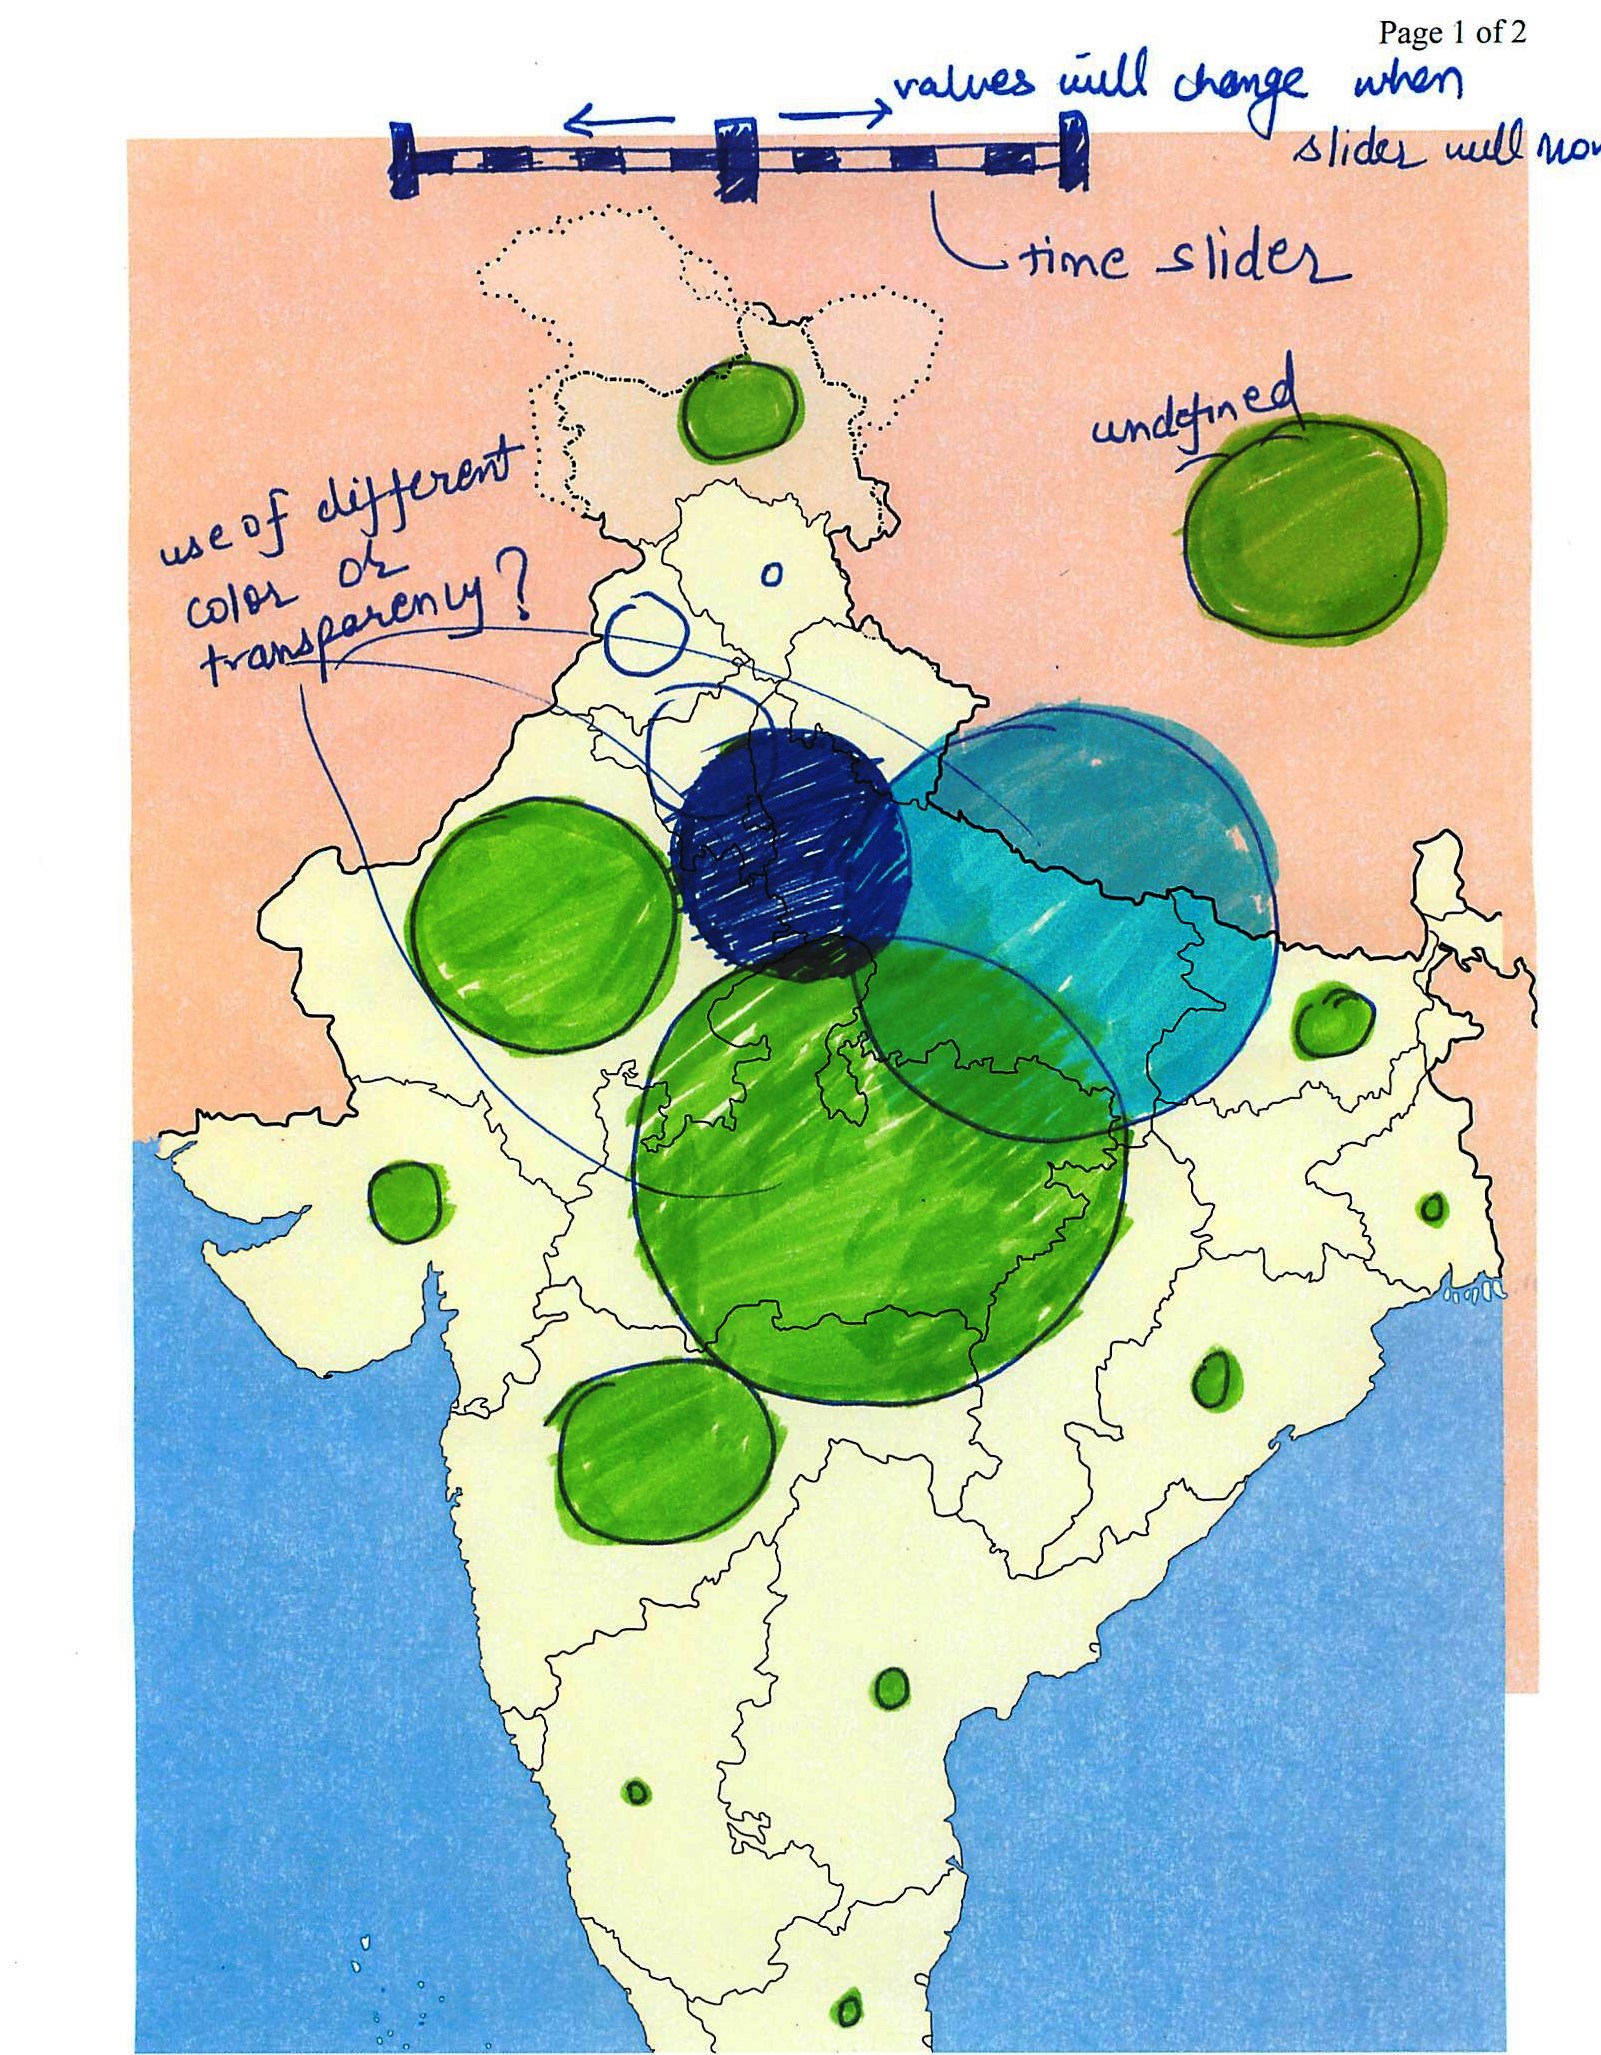 Page 1 of 2
values will change when
slider will
time slider
undefined
use of different
color or
transparency?